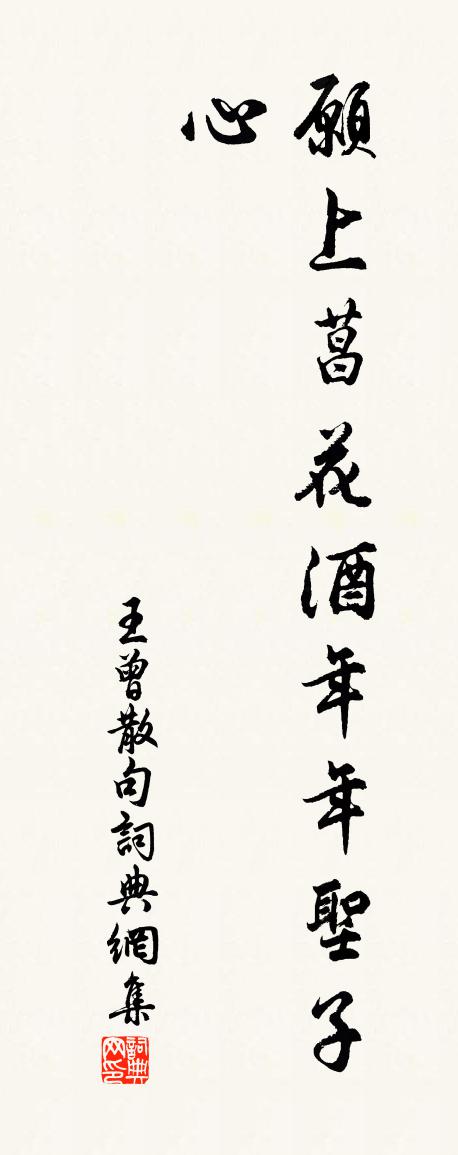 願上菖花酒年年聖子
心
王曾散句詞典網集
詞典
网印